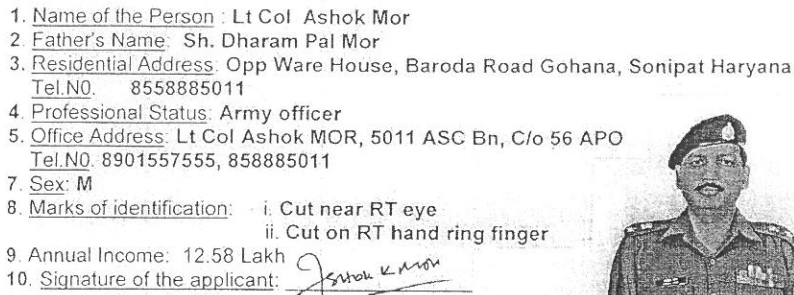 1. Name of the Person : Lt Col Ashok Mor
2. Father's Name: Sh. Dharam Pal Mor
3. Residential Address: Opp Ware House, Baroda Road Gohana, Sonipat Haryana
Tel.N0. 8558885011
4. Professional Status: Army officer
5. Office Address: Lt Col Ashok MOR, 5011 ASC Bn, C/o 56 APO
Tel.N0. 8901557555, 858885011
7. Sex: M
8. Marks of identification: i. Cut near RT eye
ii. Cut on RT hand ring finger
9. Annual Income: 12.58 Lakh
10. Signature of the applicant: Ashok K Mor